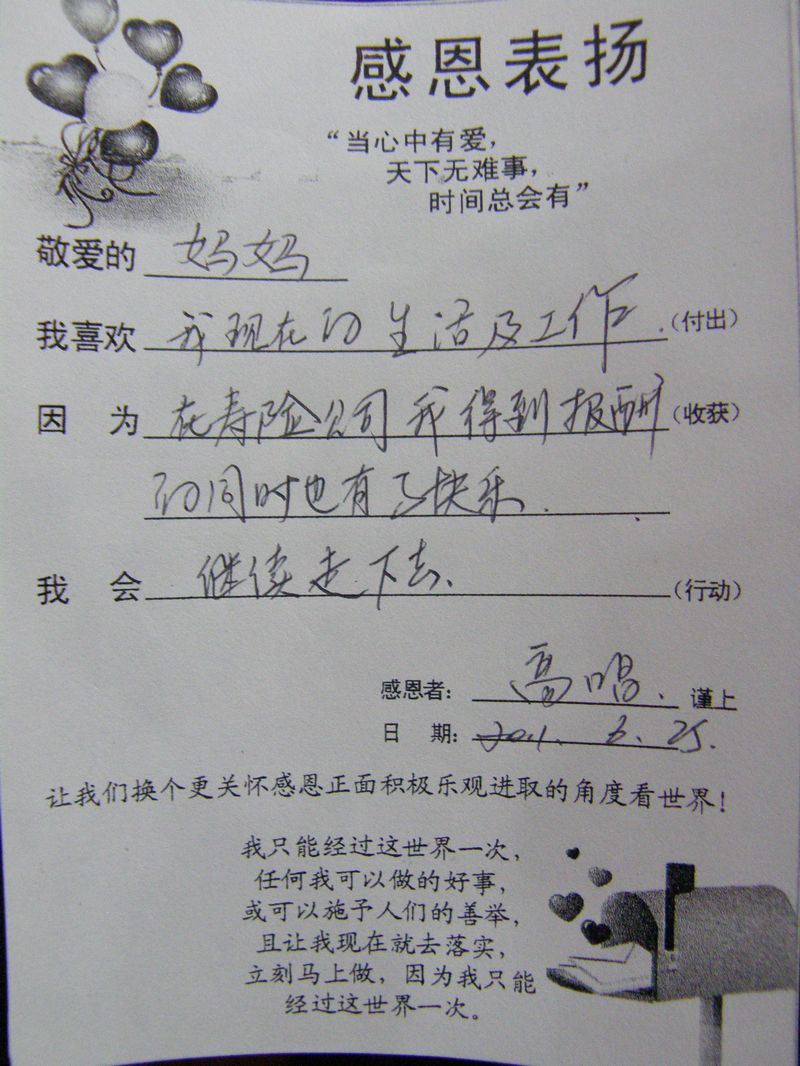 感恩表扬
“当心中有爱，
天下无难事，
时间总会有”
敬爱的 妈妈
我喜欢 我现在的生活及工作.（付出）
因为 在寿险公司我得到报酬（收获）
的同时也有了快乐.
我会 继续走下去.（行动）
感恩者：高唱. 谨上
日期：2011. 6. 25.
让我们换个更关怀感恩正面积极乐观进取的角度看世界！
我只能经过这世界一次，
任何我可以做的好事，
或可以施予人们的善举，
且让我现在就去落实，
立刻马上做，因为我只能
经过这世界一次。